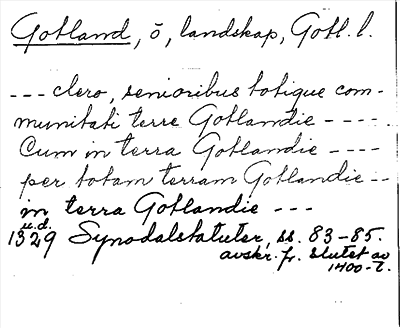 Gotland, ö, landskap, Gotl. l.
--- clero, senioribus totique com-
munitati terre Gotlandie ----.
Cum in terra Gotlandie ----
per totam terram Gotlandie --
in terra Gotlandie ---
u.d.
1329 Synodalstatuter, ss. 83-85.
avskr. fr. slutet av
1400-t.